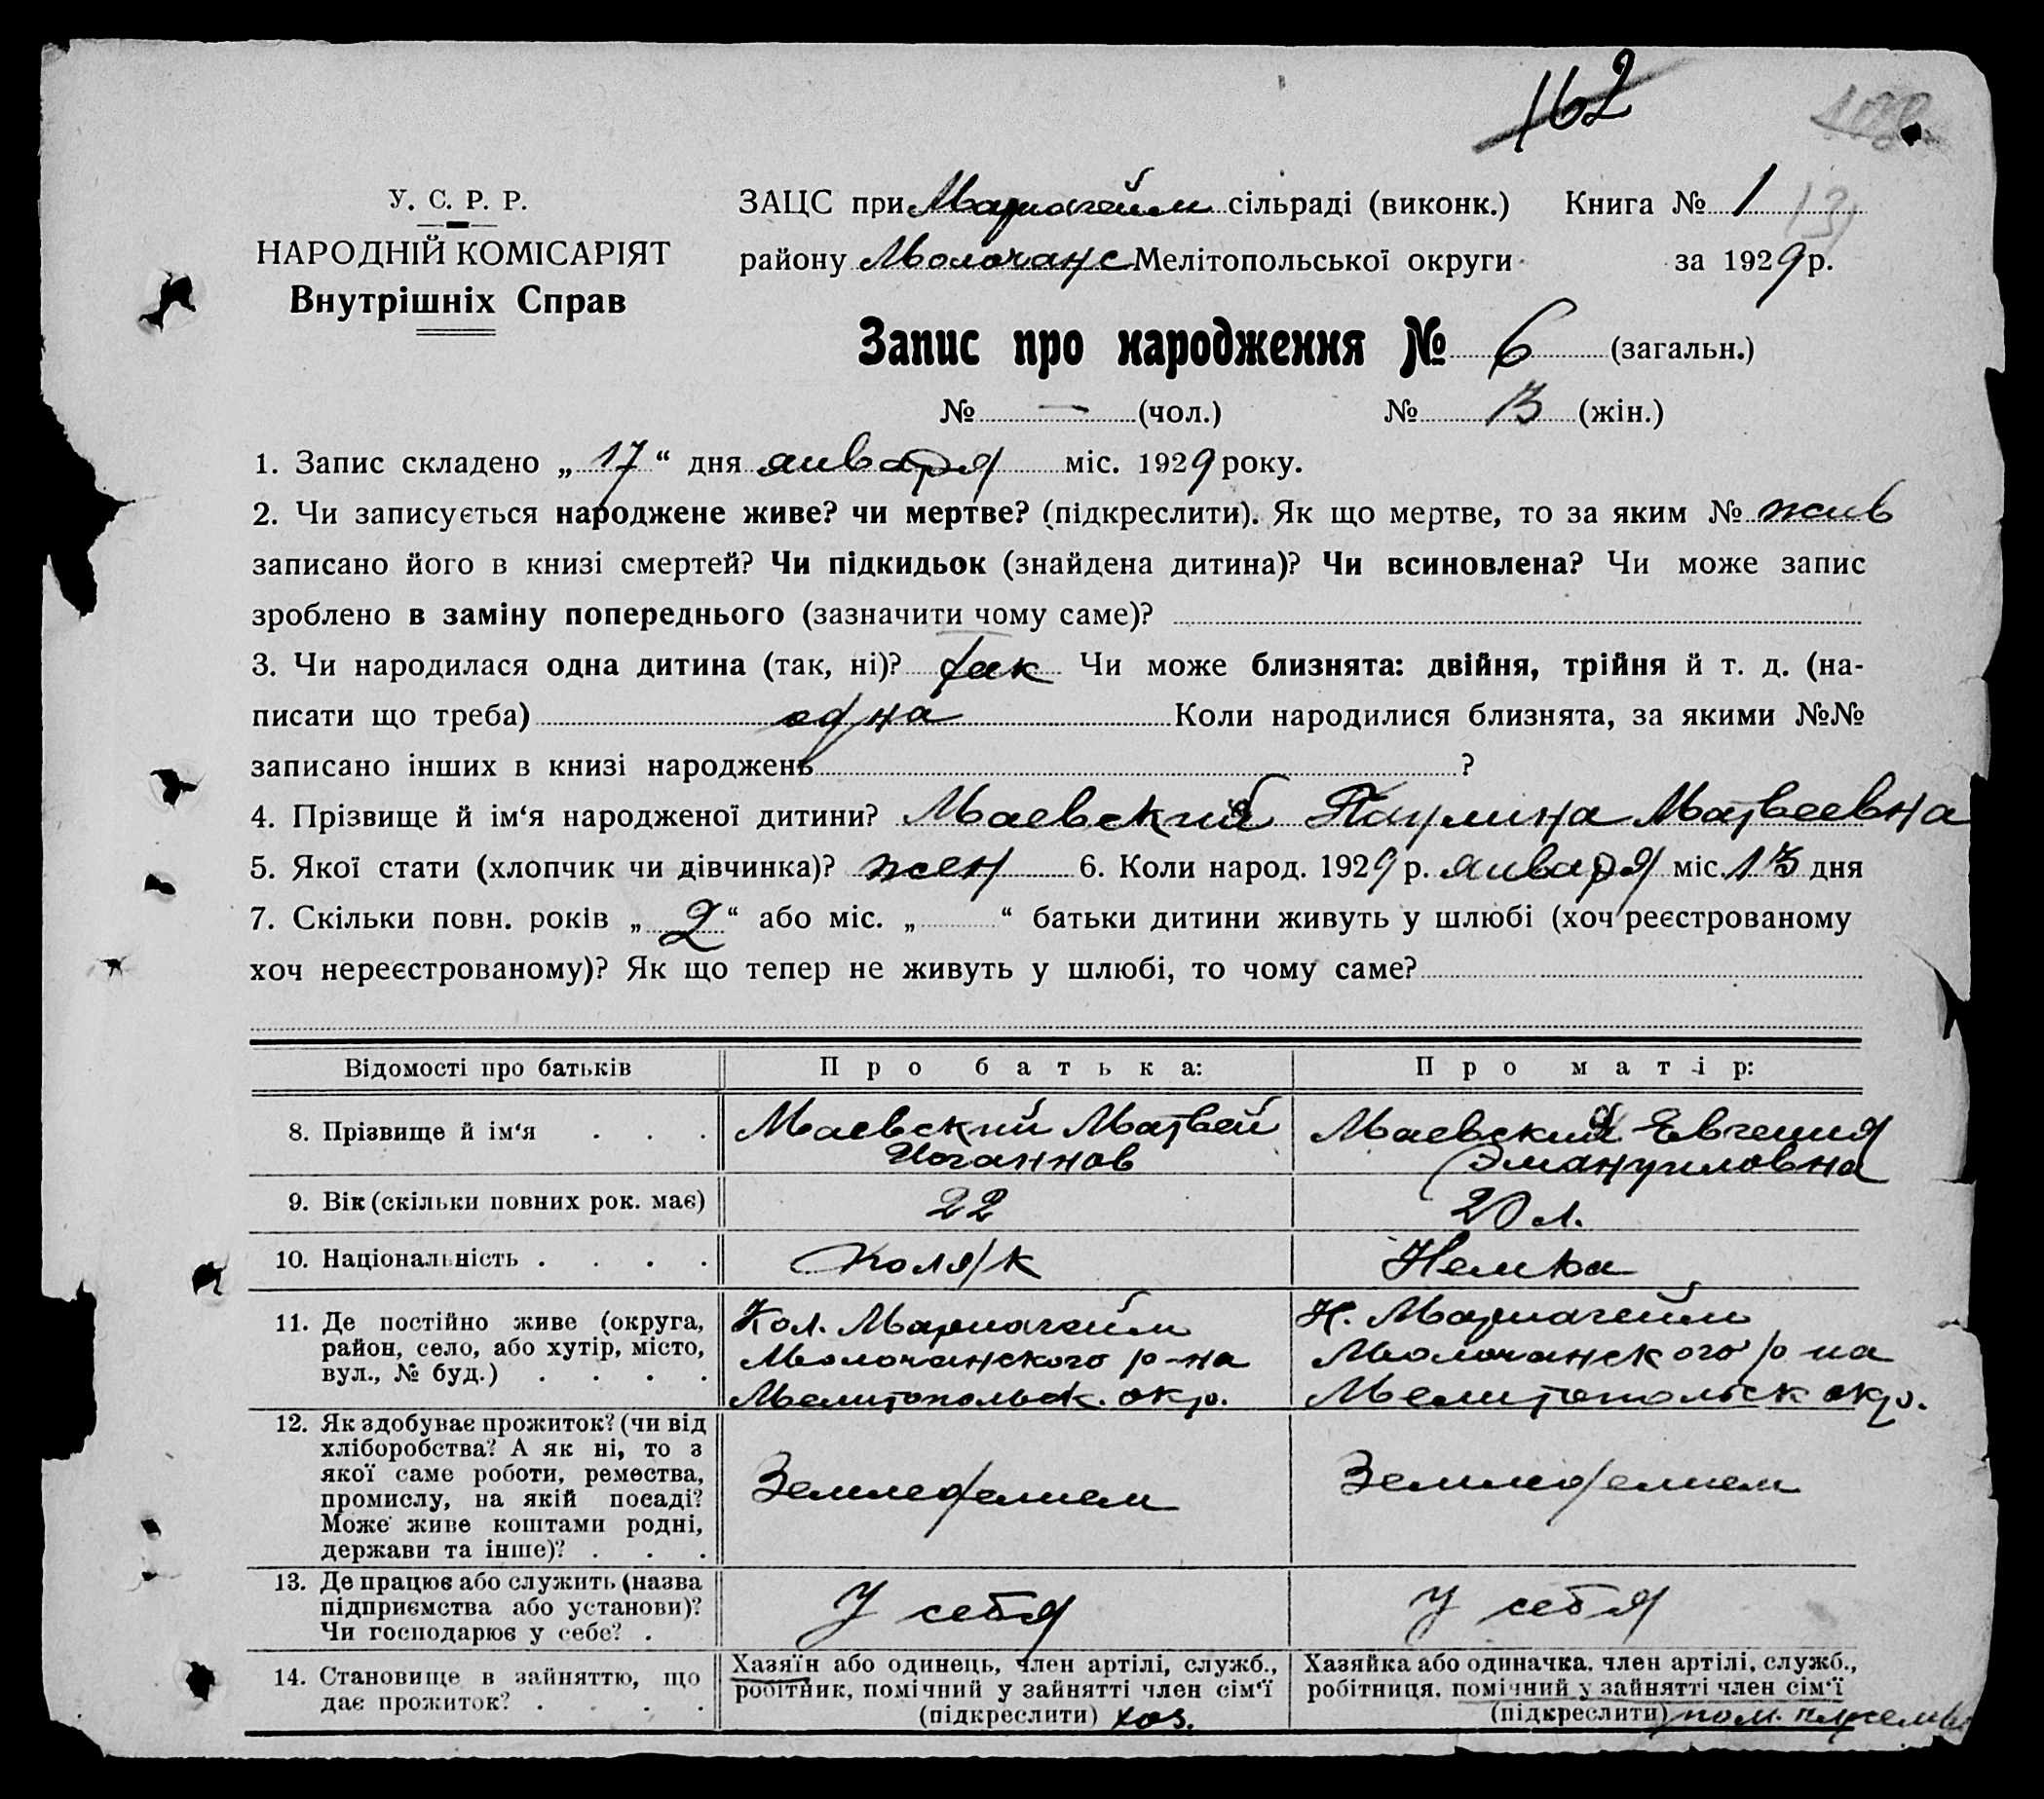 162
У. С. Р. Р.
НАРОДНІЙ КОМІСАРІЯТ
Внутрішніх Справ
ЗАЦС при Мариагейм сільраді (виконк.) Книга № 1
району Молочанс Мелітопольської округи за 1929 р.
Запис про народження № 6 (загальн.)
№ — (чол.) № 3 (жін.)
1. Запис складено „ 17 “ дня января міс. 1929 року.
2. Чи записується народжене живе? чи мертве? (підкреслити). Як що мертве, то за яким № жив
записано його в книзі смертей? Чи підкидьок (знайдена дитина)? Чи всиновлена? Чи може запис
зроблено в заміну попереднього (зазначити чому саме)?
3. Чи народилася одна дитина (так, ні)? так Чи може близнята: двійня, трійня й т. д. (на-
писати що треба) одна Коли народилися близнята, за якими №№
записано інших в книзі народжень ?
4. Прізвище й ім‘я народженої дитини? Маевский Паулина Матвеевна
5. Якої стати (хлопчик чи дівчинка)? жен 6. Коли народ. 1929 р. января міс. 13 дня
7. Скільки повн. років „ 2 “ або міс. „ “ батьки дитини живуть у шлюбі (хоч реєстрованому
хоч нереєстрованому)? Як що тепер не живуть у шлюбі, то чому саме?
Відомості про батьків Про батька: Про матір:
8. Прізвище й ім‘я . . . Маевский Матвей Иоганнов Маевский Евгения Эмануиловна
9. Вік (скільки повних рок. має) 22 20 л.
10. Національність . . . . Поляк Немка
11. Де постійно живе (округа,
район, село, або хутір, місто,
вул., № буд.) . . . .
Кол. Мариагейм
Молочанского р-на
Мелитопольск. окр.
К. Мариагейм
Молочанского р на
Мелитопольск окр.
12. Як здобуває прожиток? (чи від
хліборобства? А як ні, то з
якої саме роботи, ремества,
промислу, на якій посаді?
Може живе коштами родні,
держави та інше)? . . .
Земледелием Земледелием
13. Де працює або служить (назва
підприємства або установи)?
Чи господарює у себе? .
У себя У себя
14. Становище в зайняттю, що
дає прожиток? . . . .
Хазяїн або одинець, член артілі, служб.,
робітник, помічний у зайнятті член сім‘ї
(підкреслити) хоз.
Хазяйка або одиначка, член артілі, служб.,
робітниця, помічний у зайнятті член сім‘ї
(підкреслити) пом.